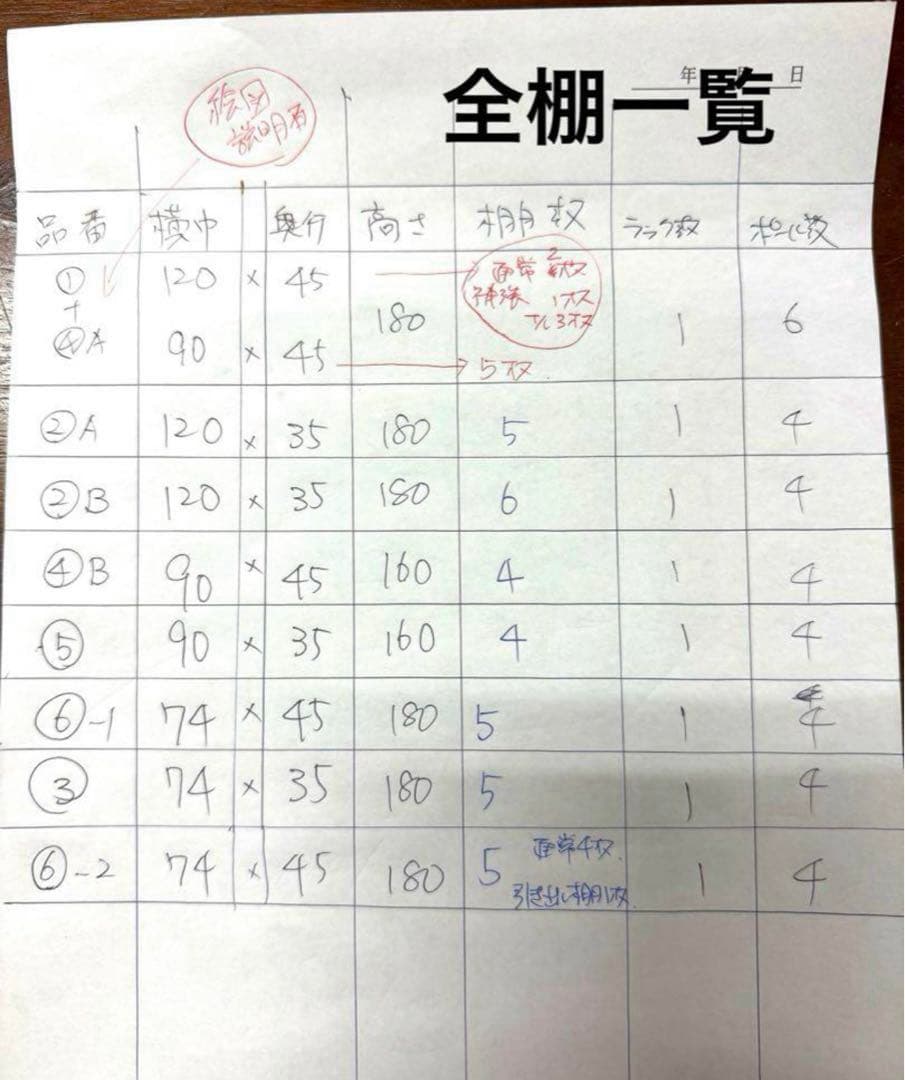 全棚一覧
年 日
絵図
説明有
品番 横巾 奥行 高さ 棚枚 ラック数 ポール数
① 120 × 45 通常2枚
+ 180 補強 1枚 1 6
計3枚
④A 90 × 45 5枚
②A 120 × 35 180 5 1 4
②B 120 × 35 180 6 1 4
④B 90 × 45 160 4 1 4
⑤ 90 × 35 160 4 1 4
⑥-1 74 × 45 180 5 1 4
③ 74 × 35 180 5 1 4
⑥-2 74 × 45 180 5 通常4枚 1 4
引き出し棚1枚